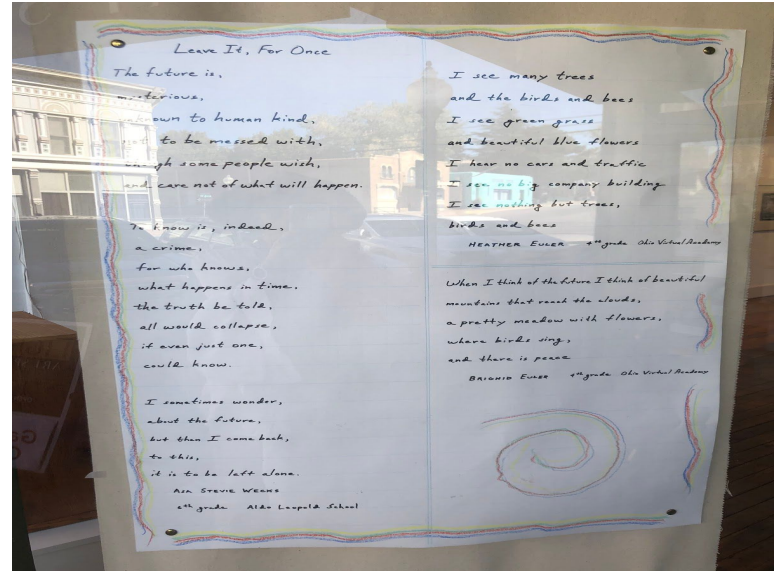 Leave It, For Once
The future is,
mysterious,
unknown to human kind,
not to be messed with,
though some people wish,
and care not of what will happen.
To know is, indeed,
a crime,
for who knows,
what happens in time,
the truth be told,
all would collapse,
if even just one,
could know.
I sometimes wonder,
about the future,
but then I come back,
to this,
it is to be left alone.
ASA STEVIE WEEKS
6th grade Aldo Leopold School
I see many trees
and the birds and bees
I see green grass
and beautiful blue flowers
I hear no cars and traffic
I see no big company building
I see nothing but trees,
birds and bees
HEATHER EULER 4th grade Ohio Virtual Academy
When I think of the future I think of beautiful
mountains that reach the clouds,
a pretty meadow with flowers,
where birds sing,
and there is peace
BRIGHID EULER 4th grade Ohio Virtual Academy